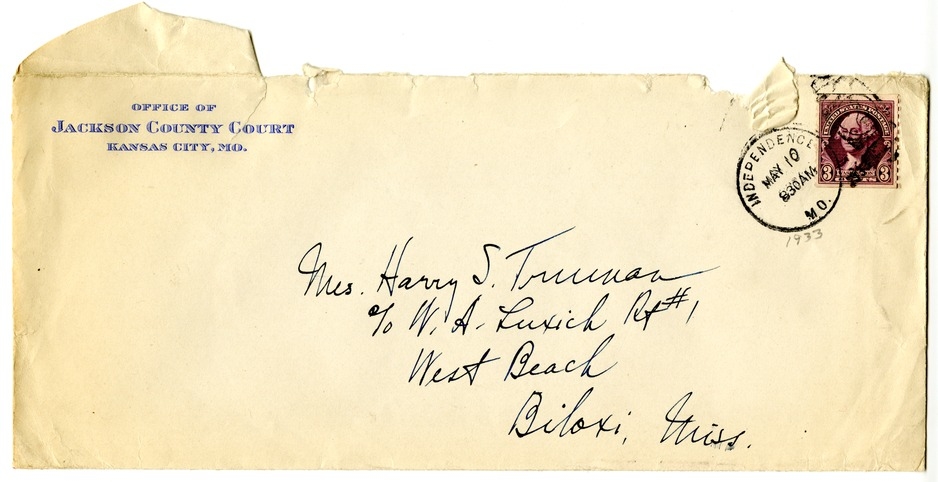 OFFICE OF
JACKSON COUNTY COURT
KANSAS CITY, MO.
INDEPENDENCE
MAY 10
830AM
MO.
1933
3 3
Mrs. Harry S. Truman
c/o W. A. Luxich Rt #1
West Beach
Biloxi, Miss.